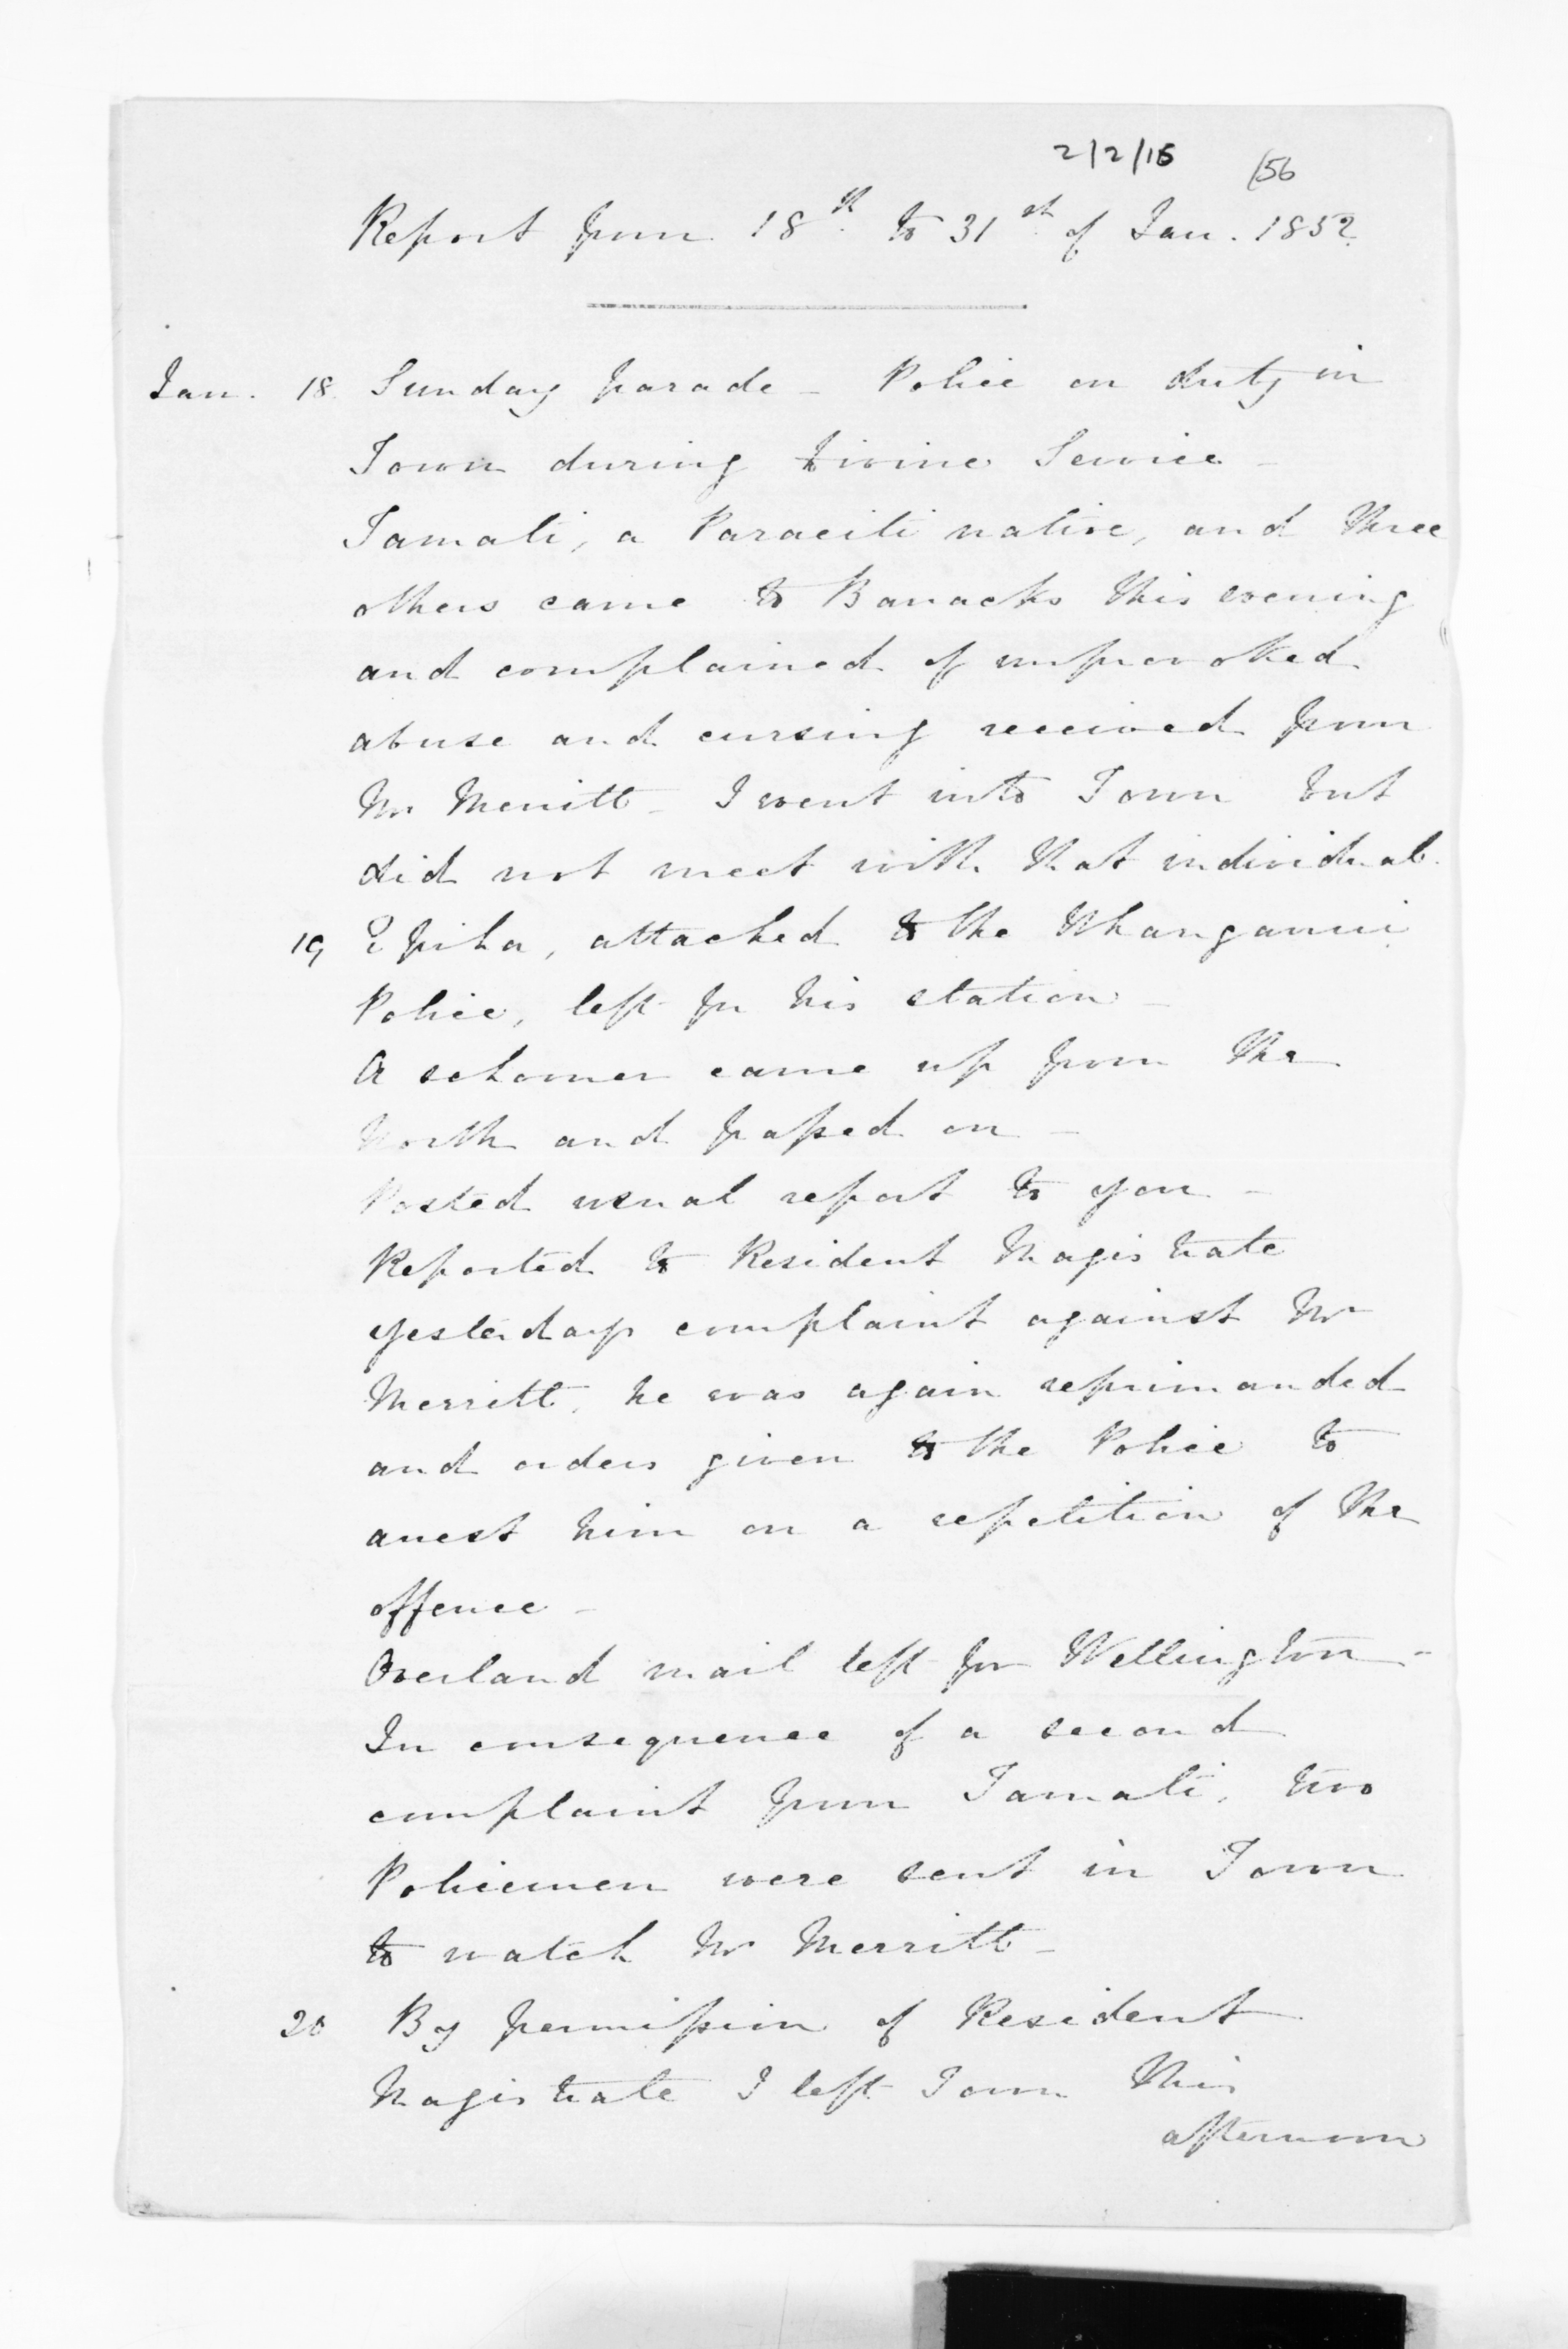 2/2/16 (56
Report from 18th to 31st of Jan. 1852.
Jan. 18. Sunday parade - Police on duty in
Town during Divine Service -
Tamati, a Paraciti native, and three
others came to Barracks this evening
and complained of unprovoked
abuse and cursing received from
Mr Merritt - I went into Town but
did not meet with that individual.
19 Epiha, attached to the Whanganui
Police, left for his station -
A schooner came up from the
North and passed on -
Posted usual report to you -
Reported to Resident Magistrate
yesterdays complaint against Mr
Merritt, he was again reprimanded
and orders given to the Police to
arrest him on a repetition of the
offence -
Overland mail left for Wellington -
In consequence of a second
complaint from Tamati, two
Policemen were sent in Town
to watch Mr Merritt -
20 By permission of Resident
Magistrate I left Town this
afternoon